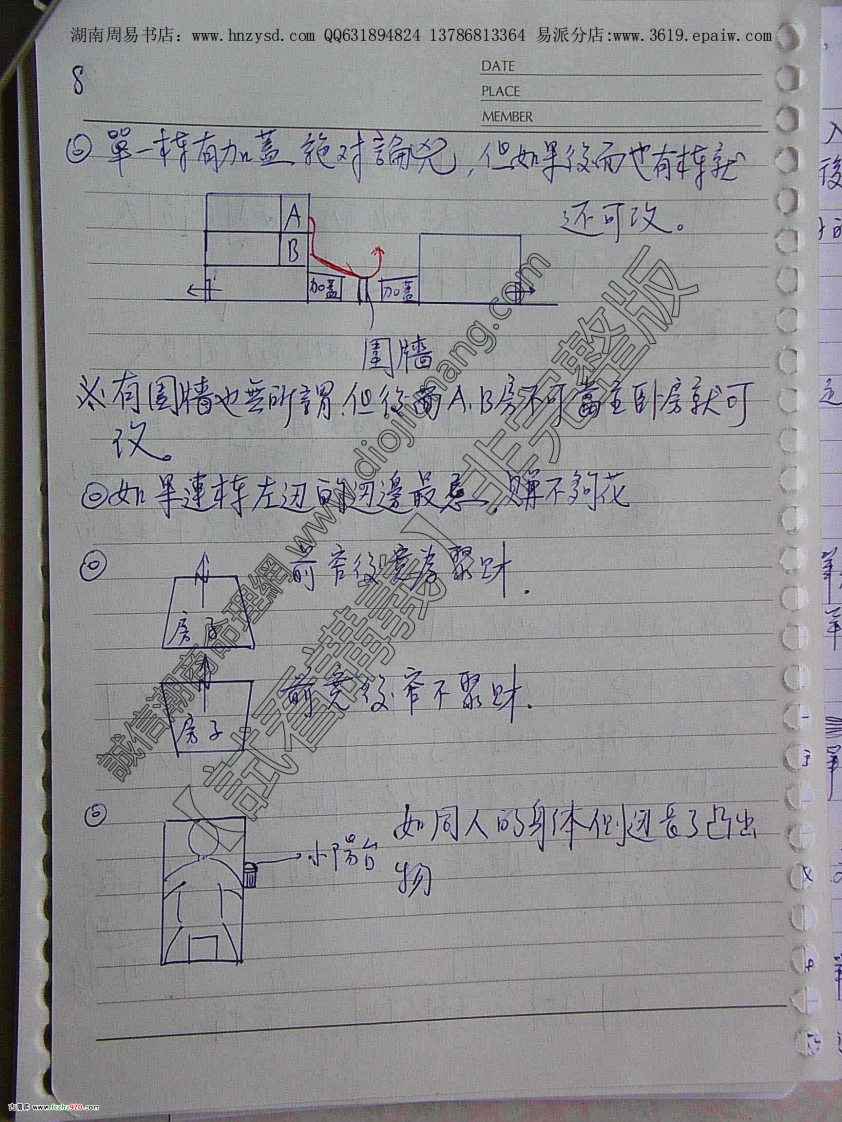 湖南周易书店：www.hnzysd.com QQ631894824 13786813364 易派分店:www.3619.epaiw.com
8
DATE
PLACE
MEMBER
◎ 單一栋有加蓋絕对論兇，但如果後面也有栋就
还可改。
A
B
加蓋
加蓋
圍牆
※有圍牆也無所謂，但後面A、B房不可當主卧房就可
改。
◎如果連栋左边的边邊最惠，財不夠花
◎
房子
前窄後寬為聚財．
房子
前寬後窄不聚財．
◎
小陽台
如同人的身体侧边長了凸出
物
誠信潮商命理網 www.diojimang.com
【試看講義】非完整版